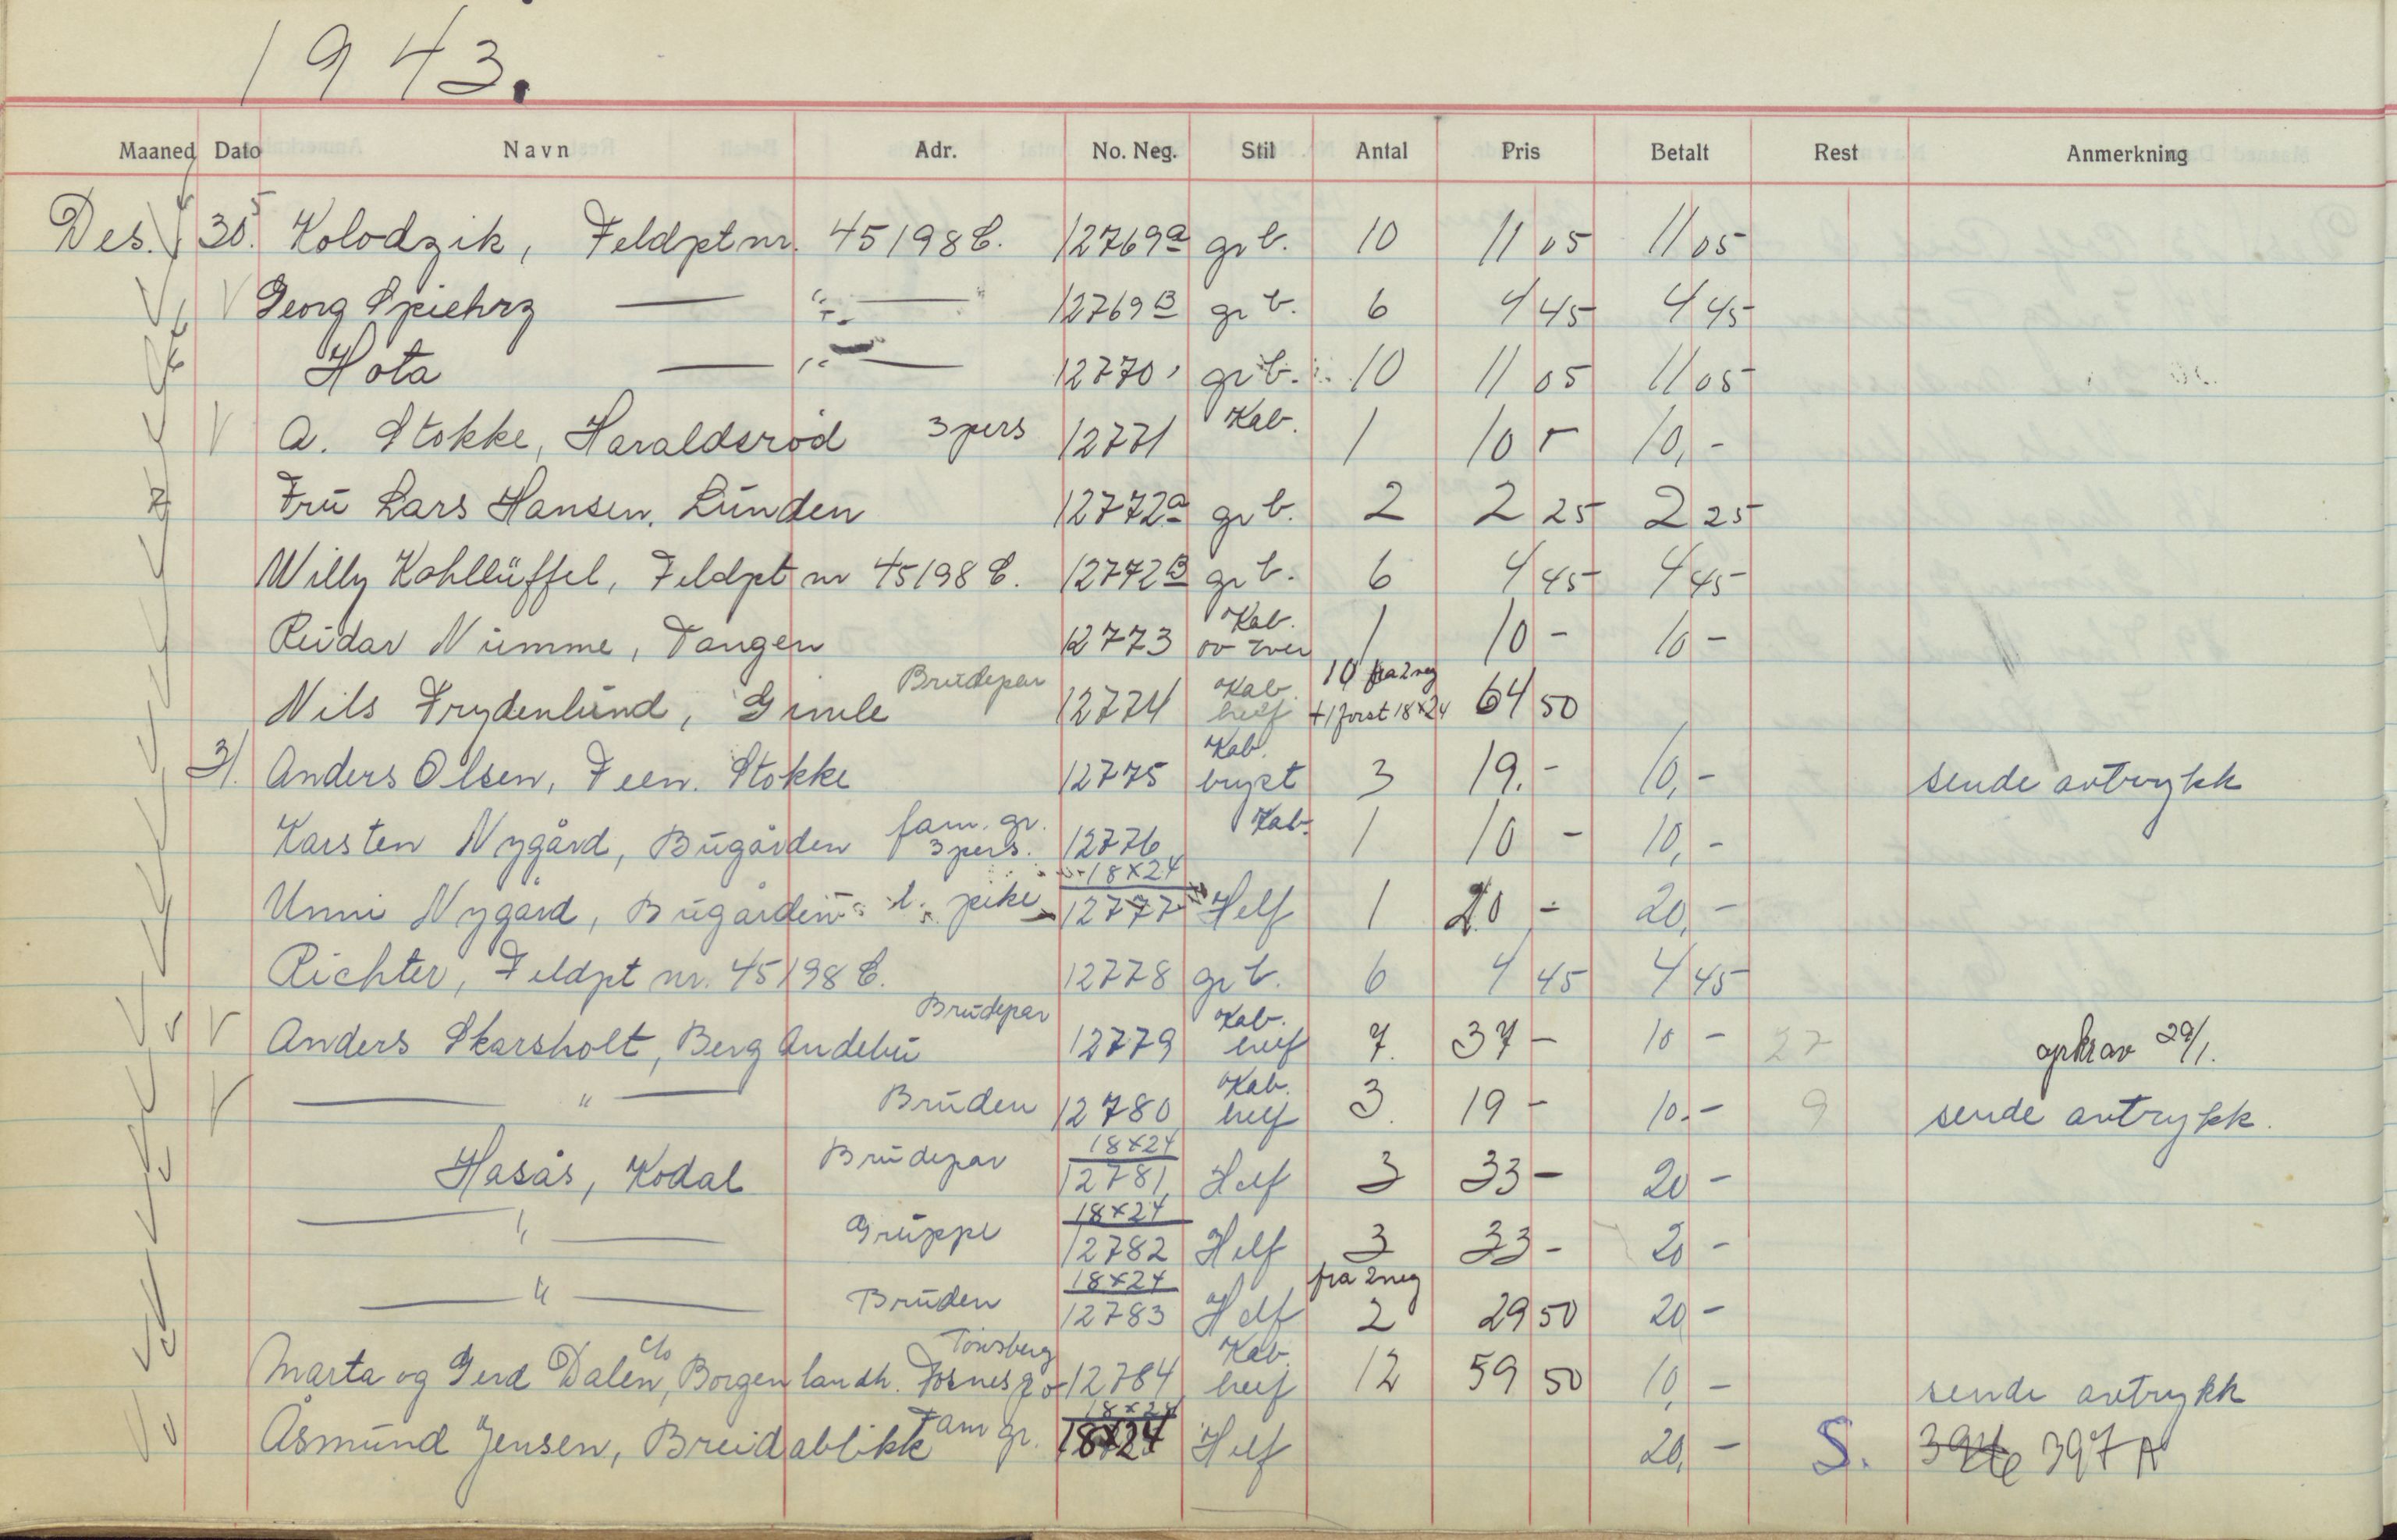 1943.
Maaned Dato Navn Adr. No. Neg. Stil Antal Pris Betalt Rest Anmerkning
Des. 30. Kolodzik, Feldpt nr. 45198 C. 12769a gr b. 10 11 05 11 05
V Georg Spiehrz — " — 12769B gr b. 6 4 45 4 45
Hota — " — 12770 gr b. 10 11 05 11 05
V A. Stokke, Haraldsrød 3 pers 12771 Kab. 1 10 - 10, -
Fru Lars Hansen, Lunden 12772a gr b. 2 2 25 2 25
Willy Kohllüffel, Feldpt nr 45198 C. 12772B gr b. 6 4 45 4 45
Reidar Numme, Tangen 12773 Kab. 1 10 - 10 -
Nils Frydenlund, Gimle Brudepar 12774 Kab. helf 10 fra 2 neg + 1 forst 18x24 64 50
31. Anders Olsen, Feen. Stokke 12775 Kab. bryst 3 19. - 10, - sende avtrykk
Karsten Nygård, Bugården fam. gr. 3 pers. 12776 Kab. 1 10 - 10, -
Unni Nygård, Bugården l. pike 18x24 12777 Helf 1 20 - 20, -
Richter, Feldpt nr. 45198 C. 12778 gr b. 6 4 45 4 45
V Anders Skarsholt, Berg Andebu Brudepar 12779 Kab. helf 7. 37 - 10 - 27 opkrav 29/1.
V — " — Bruden 12780 Kab. helf 3. 19 - 10. - 9 sende avtrykk.
Hasås, Kodal Brudepar 18x24 12781 Helf 3 33 - 20 -
— " — Gruppe 18x24 12782 Helf 3 33 - 20 -
— " — Bruden 18x24 12783 Helf fra 2 neg 2 29 50 20 -
Marta og Gerd Dalen, c/o Borgen landh. Tønsberg 12784 Kab. helf 12 59 50 10, - sende avtrykk
Åsmund Jensen, Breidablikk Fam gr. 18x24 18x24 Helf 20, - S. 397 A